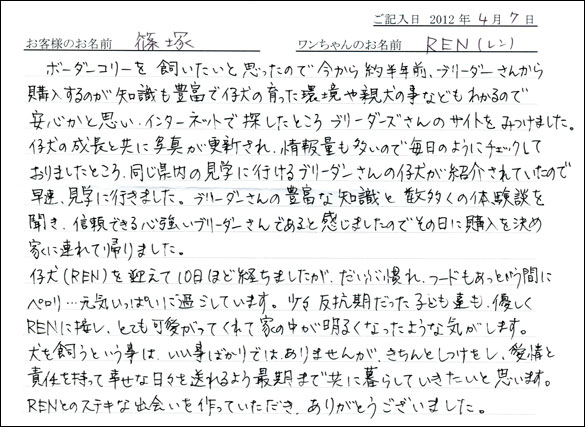 ご記入日 2012年4月7日
お客様のお名前 篠塚 ワンちゃんのお名前 REN(レン)
ボーダーコリーを飼いたいと思ったので今から約半年前、ブリーダーさんから
購入するのが知識も豊富で仔犬の育った環境や親犬の事などもわかるので
安心かと思い、インターネットで探したところブリーダーズさんのサイトをみつけました。
仔犬の成長と共に写真が更新され、情報量も多いので毎日のようにチェックして
おりましたところ、同じ県内の見学に行けるブリーダーさんの仔犬が紹介されていたので
早速、見学に行きました。ブリーダーさんの豊富な知識と数多くの体験談を
聞き、信頼できる心強いブリーダーさんであると感じましたのでその日に購入を決め
家に連れて帰りました。
仔犬(REN)を迎えて10日ほど経ちましたが、だいぶ慣れ、フードもあっという間に
ペロリ…元気いっぱいに過ごしています。少々反抗期だった子ども達も、優しく
RENに接し、とても可愛がってくれて家の中が明るくなったような気がします。
犬を飼うという事は、いい事ばかりではありませんが、きちんとしつけをし、愛情と
責任を持って幸せな日々を送れるよう最期まで共に暮らしていきたいと思います。
RENとのステキな出会いを作っていただき、ありがとうございました。